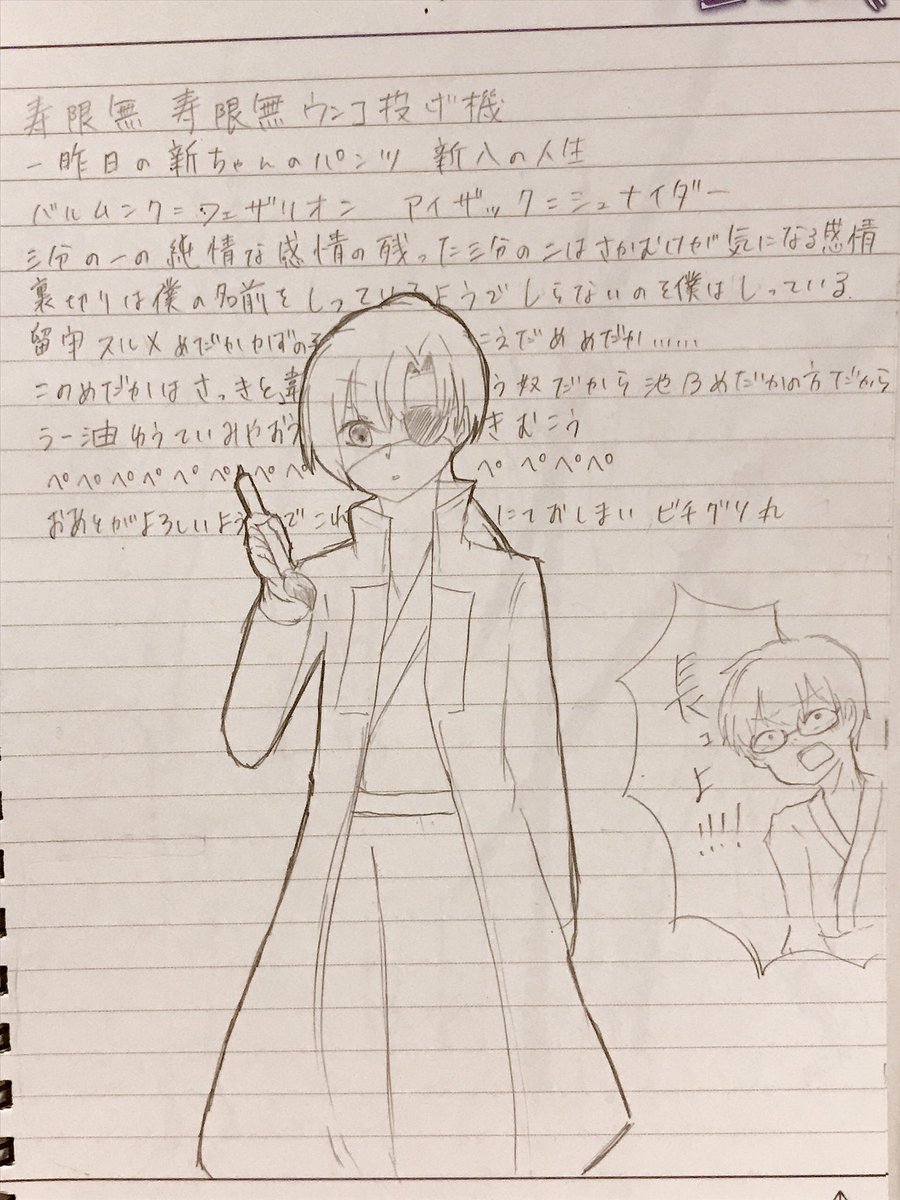 寿限無 寿限無 ウンコ投げ機
一昨日の新ちゃんのパンツ 新八の人生
バルムンク=フェザリオン アイザック=シュナイダー
三分の一の純情な感情の残った三分の二はさかむけが気になる感情
裏切りは僕の名前をしっているようでしらないのを僕はしっている
留守スルメめだかかずの子 こえだめめだか……
このめだかはさっきと違 う奴だから池乃めだかの方だから
ラー油ゆうていみやおう きむこう
ペペペペペペペペ ペペペペ
おあとがよろしいようでこれ にておしまい ビチグソ丸
長ェよ!!!!